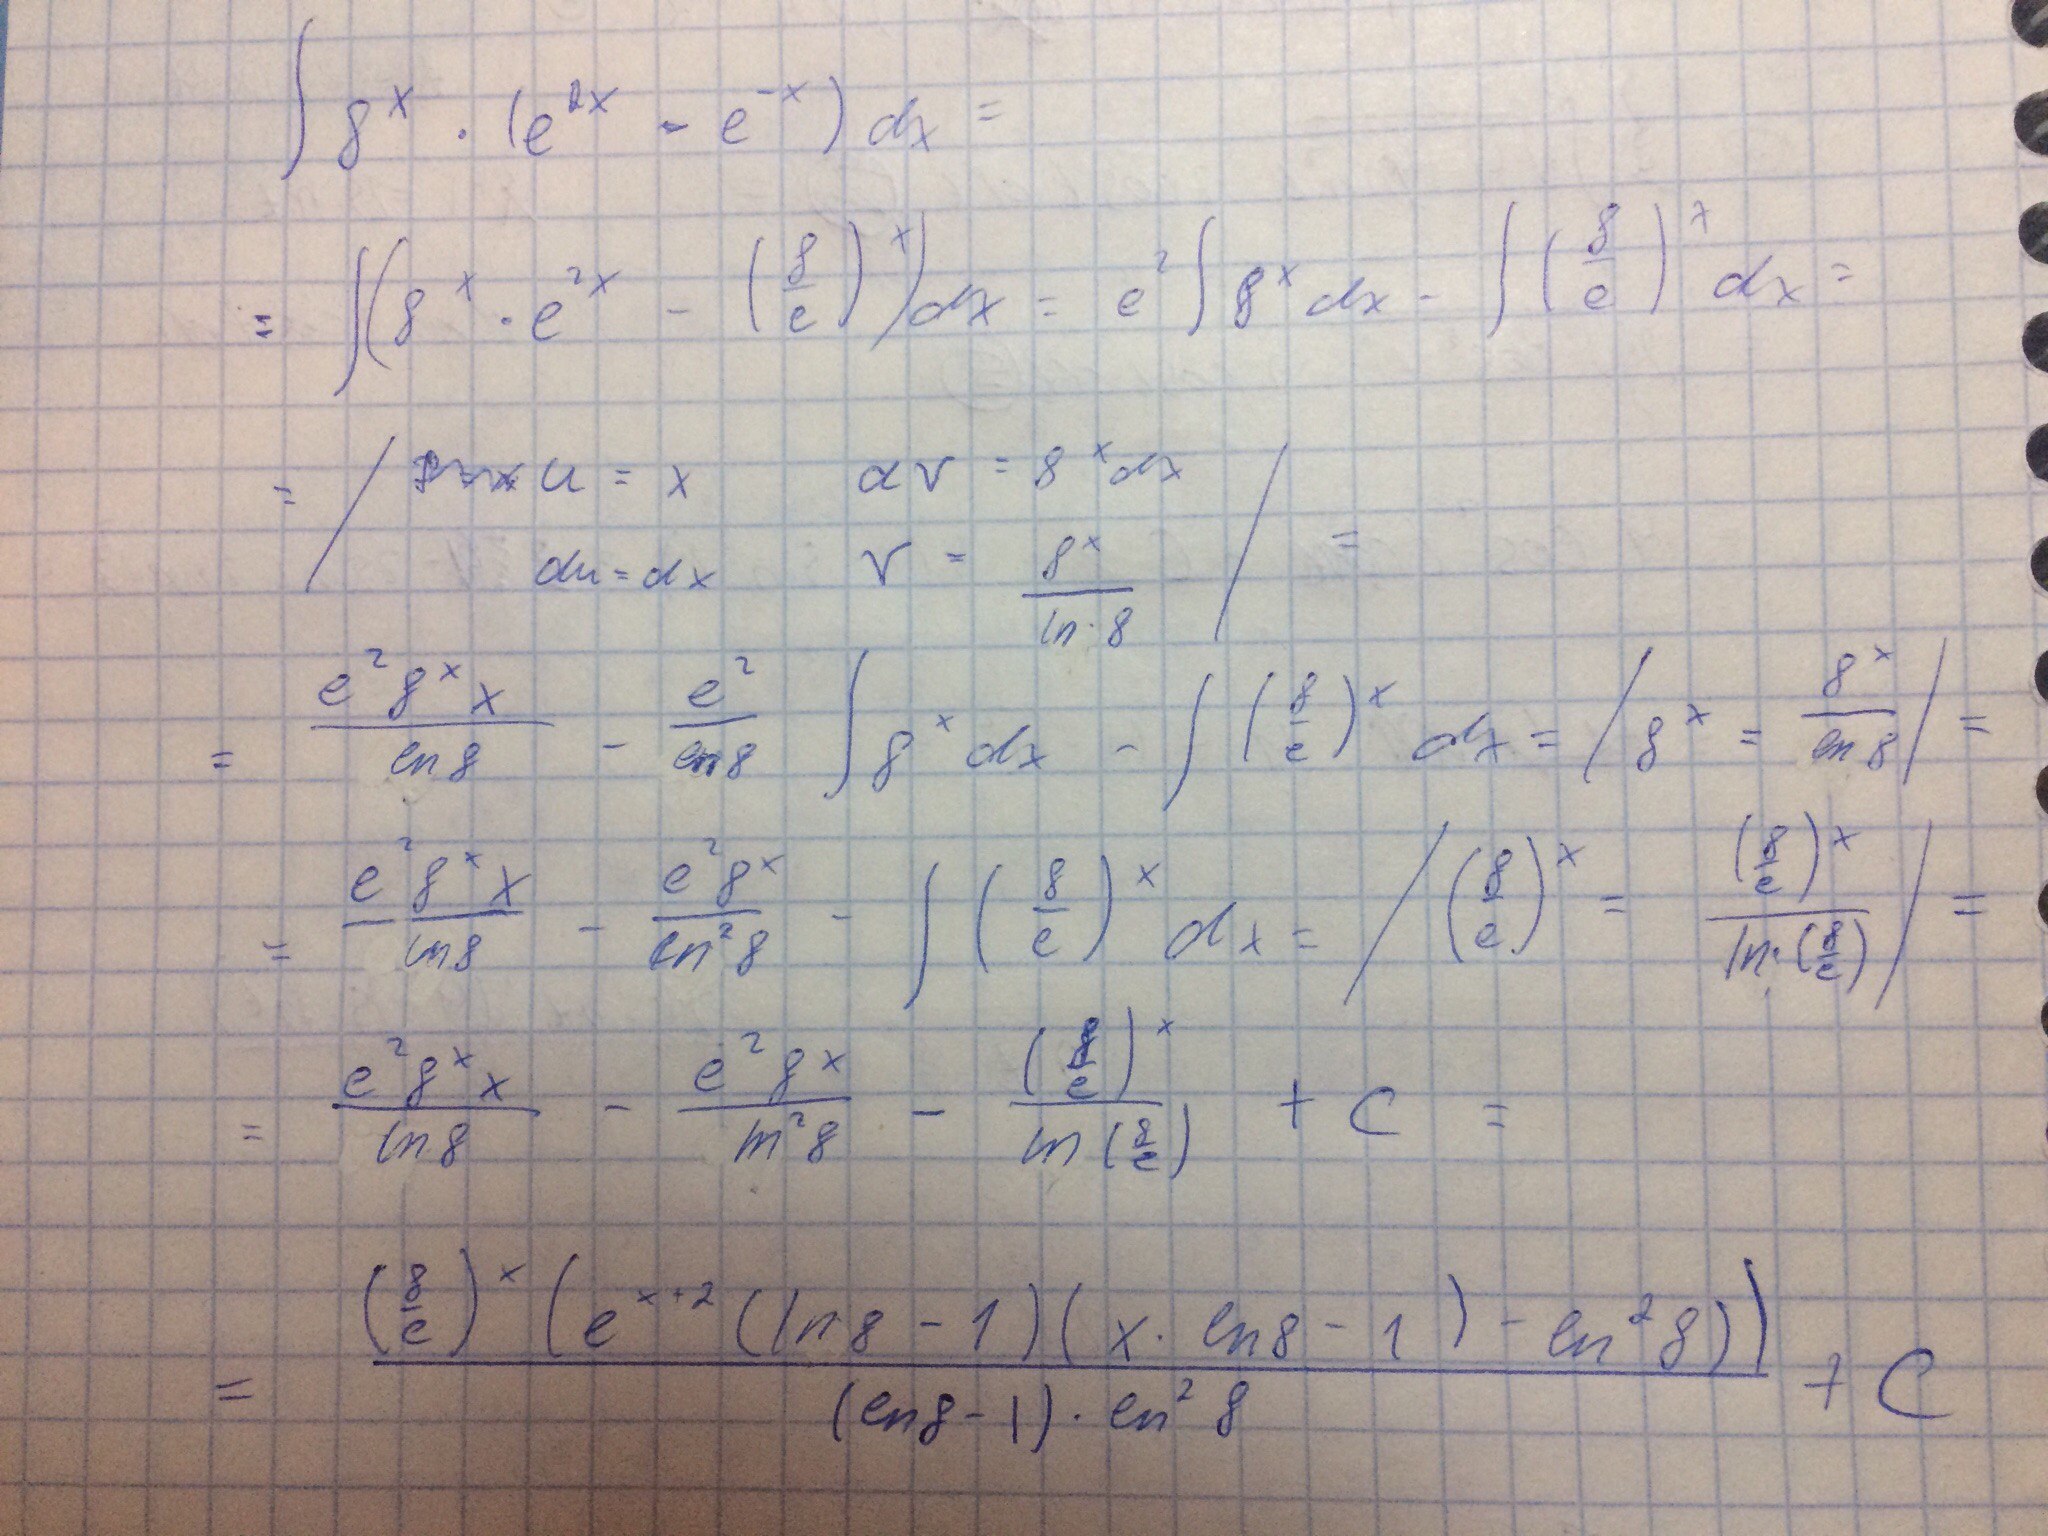 ∫ 8^x · (e^{2x} - e^{-x}) dx =
= ∫(8^x · e^{2x} - (8/e)^x) dx = e^2 ∫ 8^x dx - ∫ (8/e)^x dx =
= / u = x dv = 8^x dx
du = dx v = 8^x / ln·8 / =
= e^2 8^x x / ln 8 - e^2 / ln 8 ∫ 8^x dx - ∫ (8/e)^x dx = / 8^x = 8^x / ln 8 / =
= e^2 8^x x / ln 8 - e^2 8^x / ln^2 8 - ∫ (8/e)^x dx = / (8/e)^x = (8/e)^x / ln·(8/e) / =
= e^2 8^x x / ln 8 - e^2 8^x / ln^2 8 - (8/e)^x / ln (8/e) + C =
= (8/e)^x (e^{x+2} (ln 8 - 1)(x · ln 8 - 1) - ln^2 8)) / (ln 8 - 1) · ln^2 8 + C